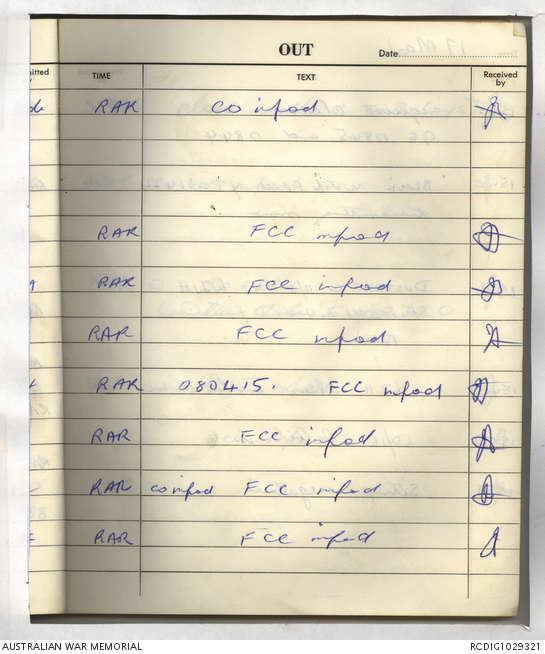 OUT
Date
itted
TIME
TEXT
Received by
RAR CO infod
RAR FCC infod
RAR FCC infod
RAR FCC infod
RAR 080415. FCC infod
RAR FCC infod
RAR co infod FCC infod
RAR FCC infod
AUSTRALIAN WAR MEMORIAL
RCDIG1029321